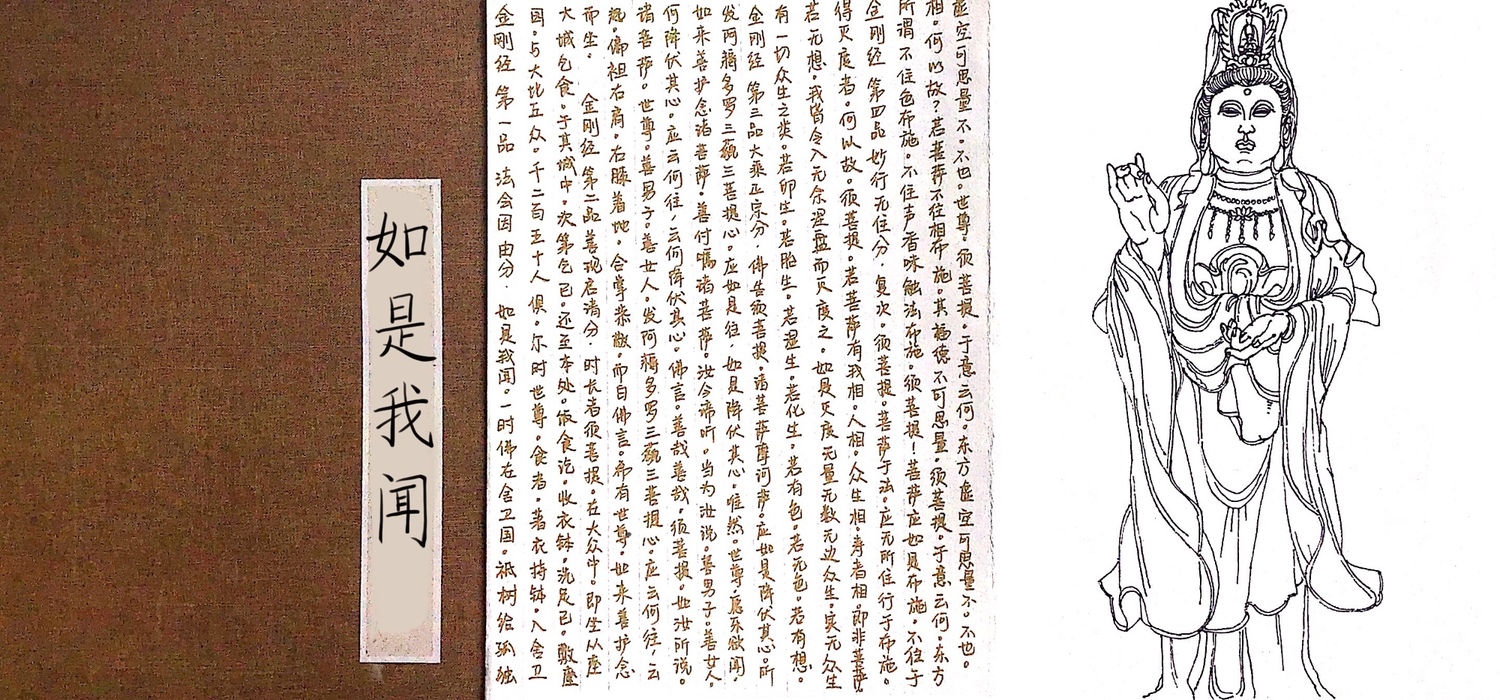 如是我闻
金刚经 第一品 法会因由分. 如是我闻。一时佛在舍卫国。祇树给孤独
园。与大比丘众。千二百五十人俱。尔时世尊。食者。著衣持钵。入舍卫
大城乞食。于其城中。次第乞已。还至本处。饭食讫。收衣钵。洗足已。敷座
而坐。 金刚经 第二品 善现启请分. 时长者须菩提。在大众中。即坐从座
起。偏袒右肩。右膝着地。合掌恭敬。而白佛言。希有世尊。如来善护念
诸菩萨。世尊。善男子。善女人。发阿耨多罗三藐三菩提心。应云何住，云
何降伏其心。应云何住，云何降伏其心。佛言。善哉善哉。须菩提。如汝所说。
如来善护念诸菩萨。善付嘱诸菩萨。汝今谛听。当为汝说。善男子。善女人。
发阿耨多罗三藐三菩提心。应如是住，如是降伏其心。唯然。世尊。愿乐欲闻
金刚经 第三品大乘正宗分. 佛告须菩提。诸菩萨摩诃萨。应如是降伏其心。所
有一切众生之类。若卵生。若胎生。若湿生。若化生。若有色。若无色。若有想。
若无想。我皆令入无余涅盘而灭度之。如是灭度无量无数无边众生。实无众生
得灭度者。何以故。须菩提。若菩萨有我相。人相。众生相。寿者相。即非菩萨。
金刚经 第四品 妙行无住分. 复次。须菩提。菩萨于法。应无所住行于布施。
所谓不住色布施。不住声香味触法布施。须菩提！菩萨应如是布施。不住于
相。何以故？若菩萨不住相布施。其福德不可思量。须菩提。于意云何。东方
虚空可思量不。不也。世尊。须菩提。于意云何。东方虚空可思量不。不也。